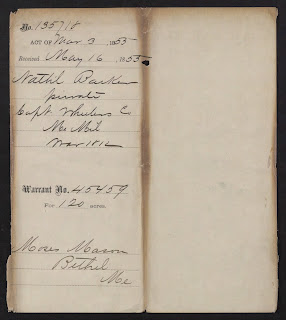 No. 135718
ACT OF Mar 3, 1855
Received May 16, 1855
Nathl Barker
private
Capt Wheelers Co
Me Mil
War 1812
Warrant No. 45459
For 120 acres.
Moses Mason
Bethel
Me